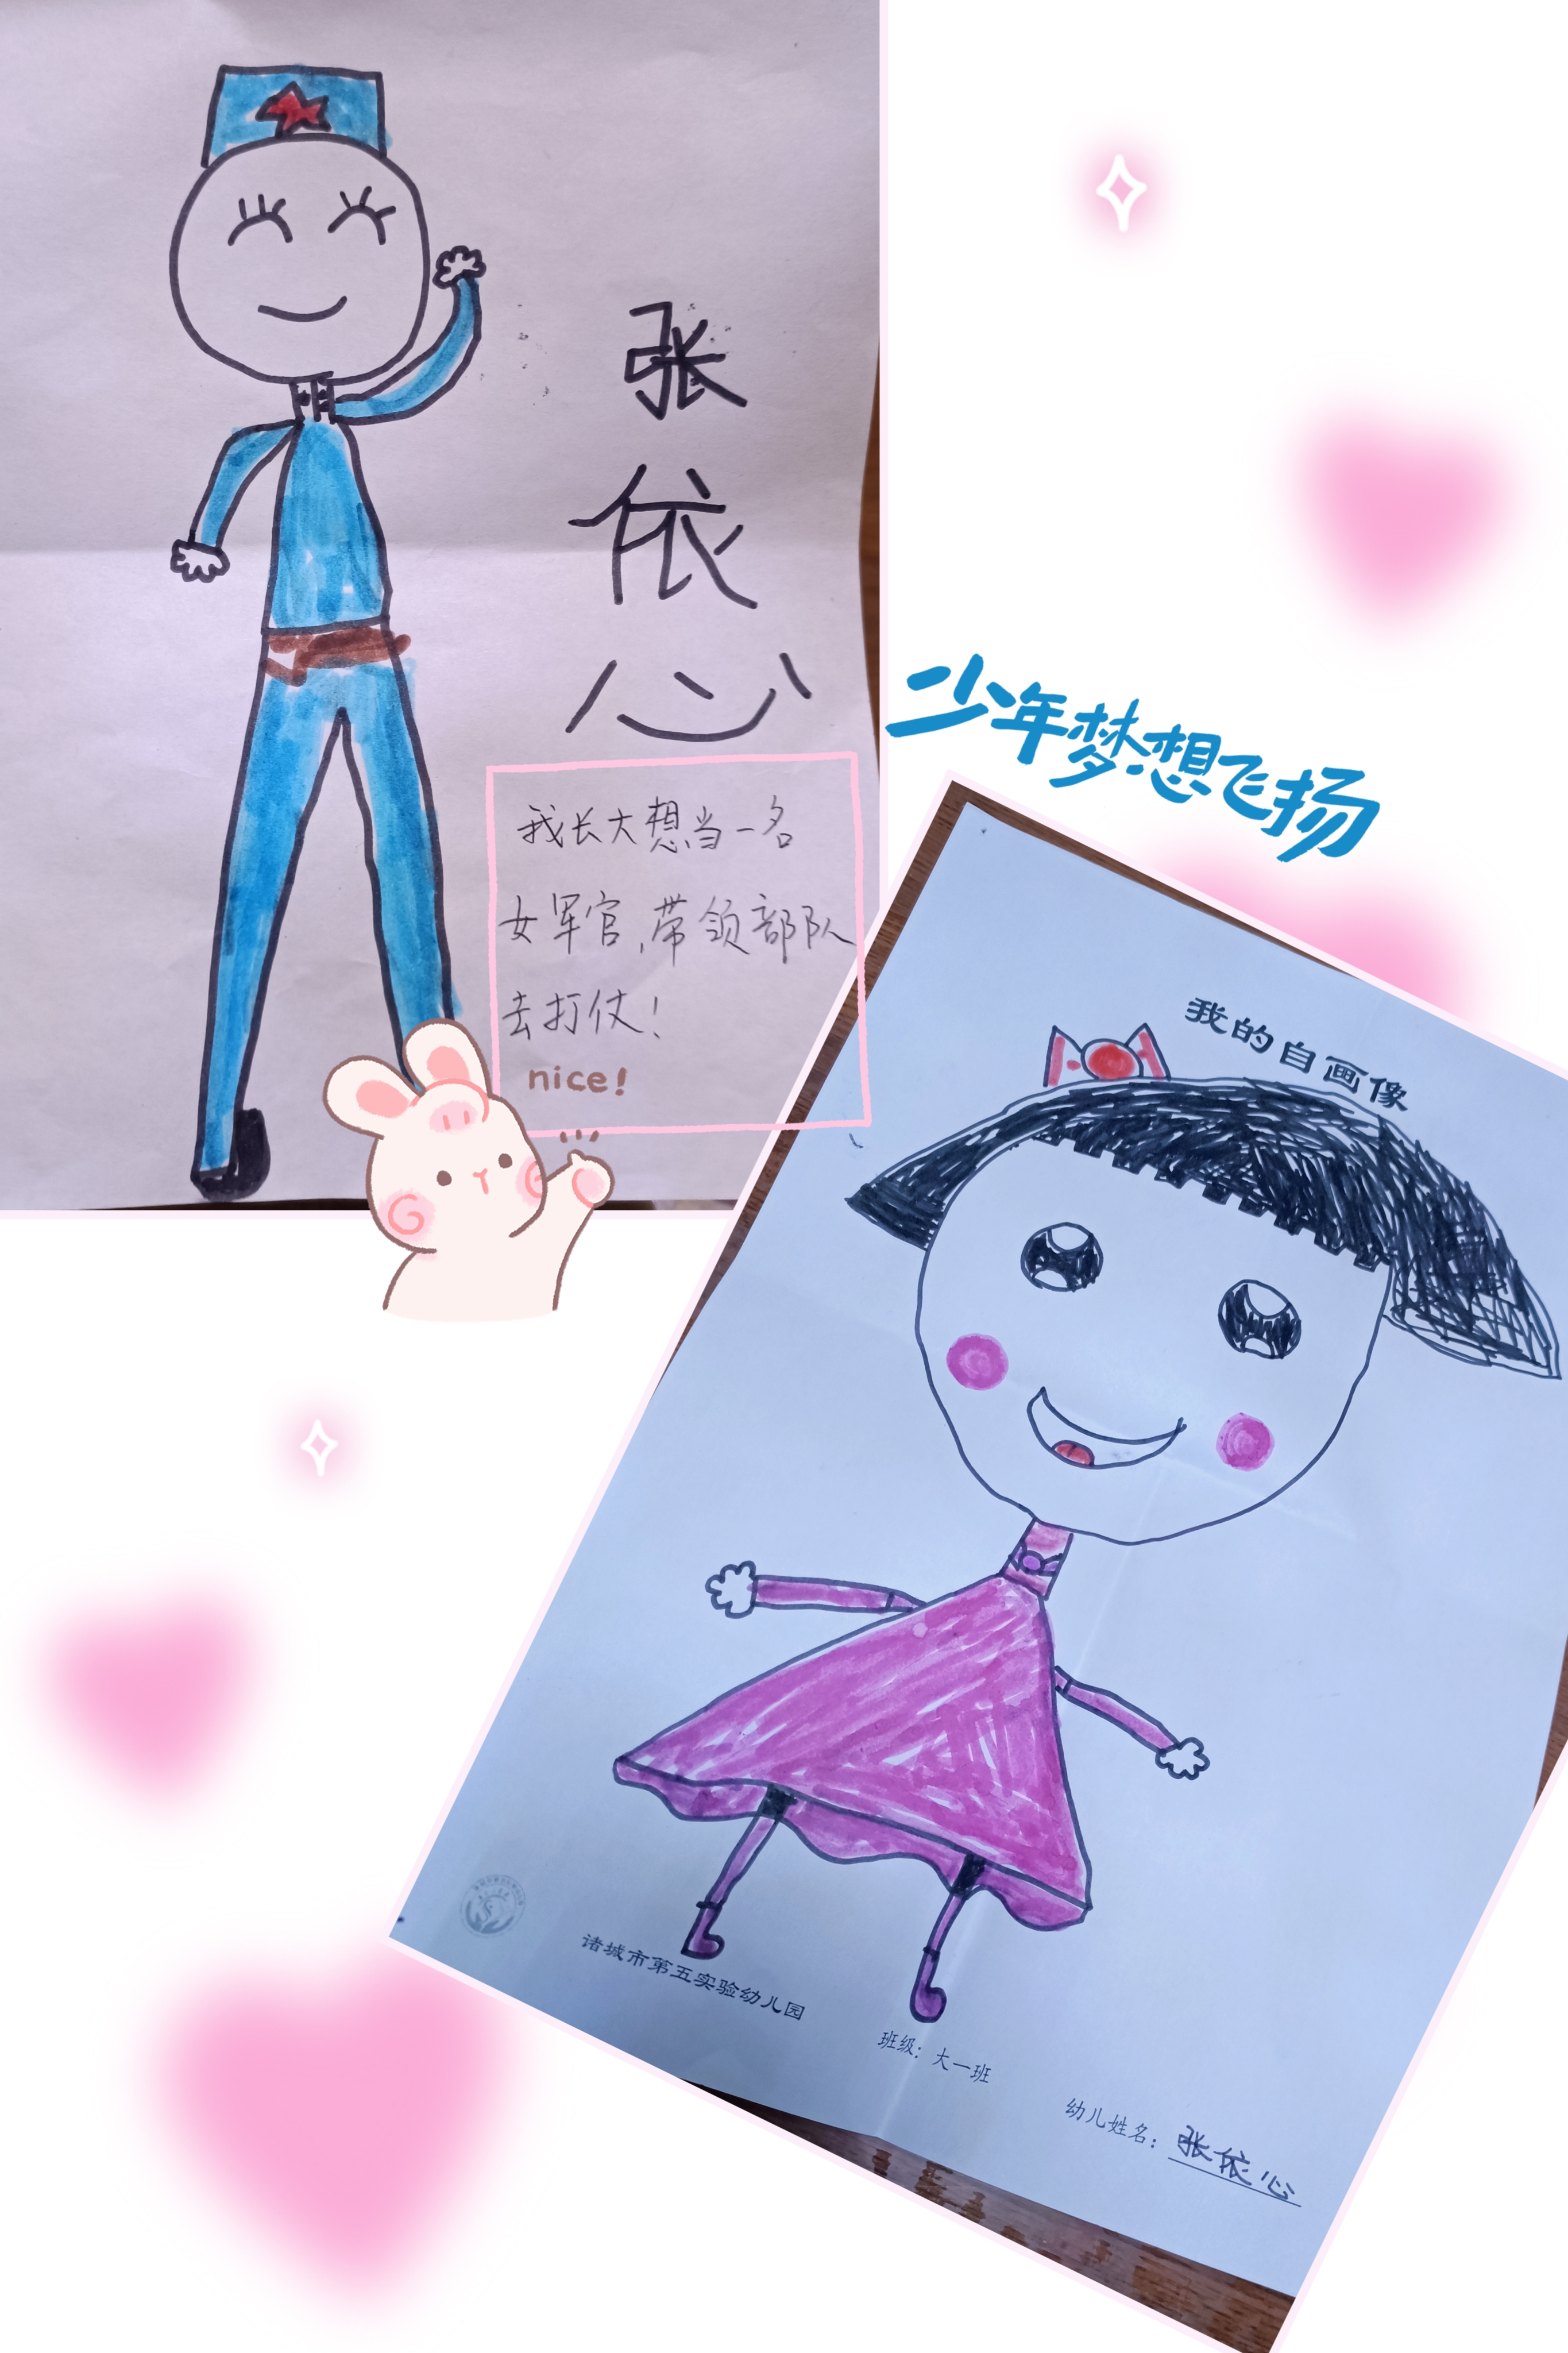 张
依
心
我长大想当一名
女军官,带领部队
去打仗!
nice!
少年梦想飞扬
我的自画像
诸城市第五实验幼儿园
班级:大一班
幼儿姓名:张依心